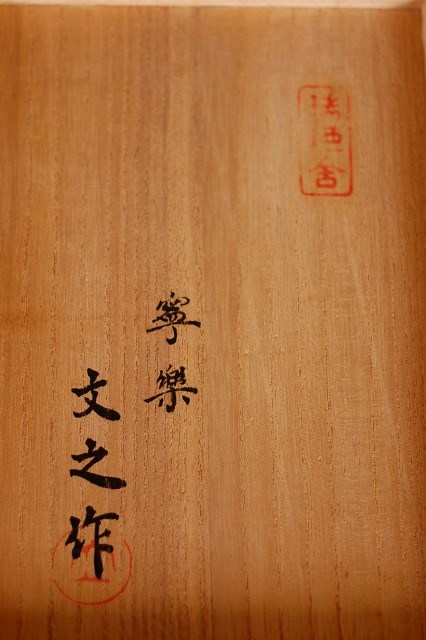 寧樂
文之作